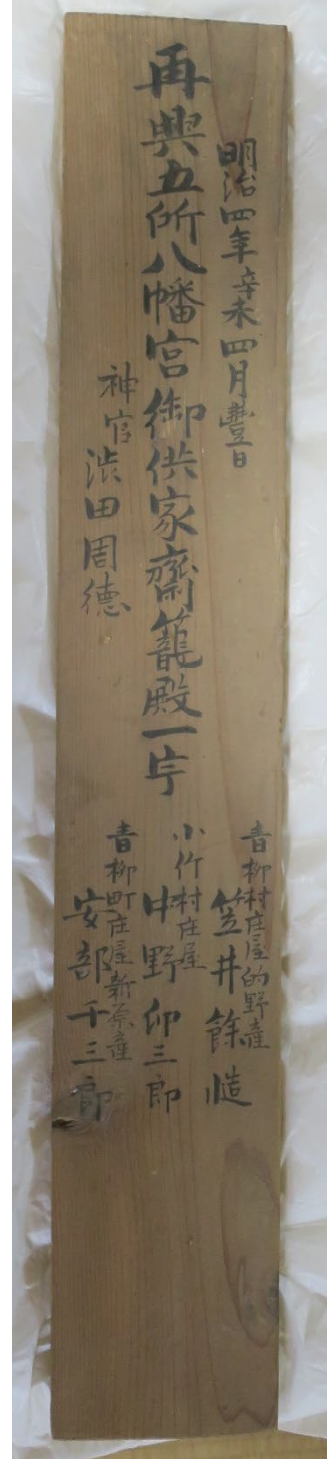 明治四年辛未四月豊日
再興五所八幡宮御供家齋籠殿一宇
神官 渋田周徳
青柳村庄屋的野産
笠井餘慥
小竹村庄屋
中野卯三郎
青柳町庄屋新原産
安部千三郎